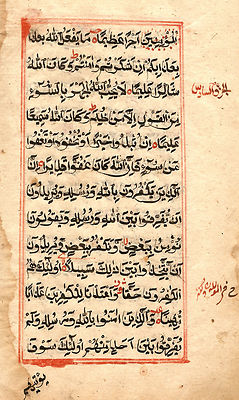 المؤمنين اجرا عظيما ما يفعل الله بعذا
بعذابكم ان شكرتم وامنتم وكان الله
شاكرا عليما لا يحب الله الجهر بالسوء
الجزء السادس
من القول الا من ظلم وكان الله سميعا
عليما ان تبدوا خيرا او تخفوه او تعفوا
عن سوء فان الله كان عفوا قديرا ان
الذين يكفرون بالله ورسله ويريدون
ان يفرقوا بين الله ورسله ويقولون
نؤمن ببعض ونكفر ببعض ويريدون
ان يتخذوا بين ذلك سبيلا اولئك هم
الكفرون حقا واعتدنا للكفرين عذابا
مهينا والذين امنوا بالله ورسله ولم
يفرقوا بين احد منهم اولئك سوف
يؤتيهم